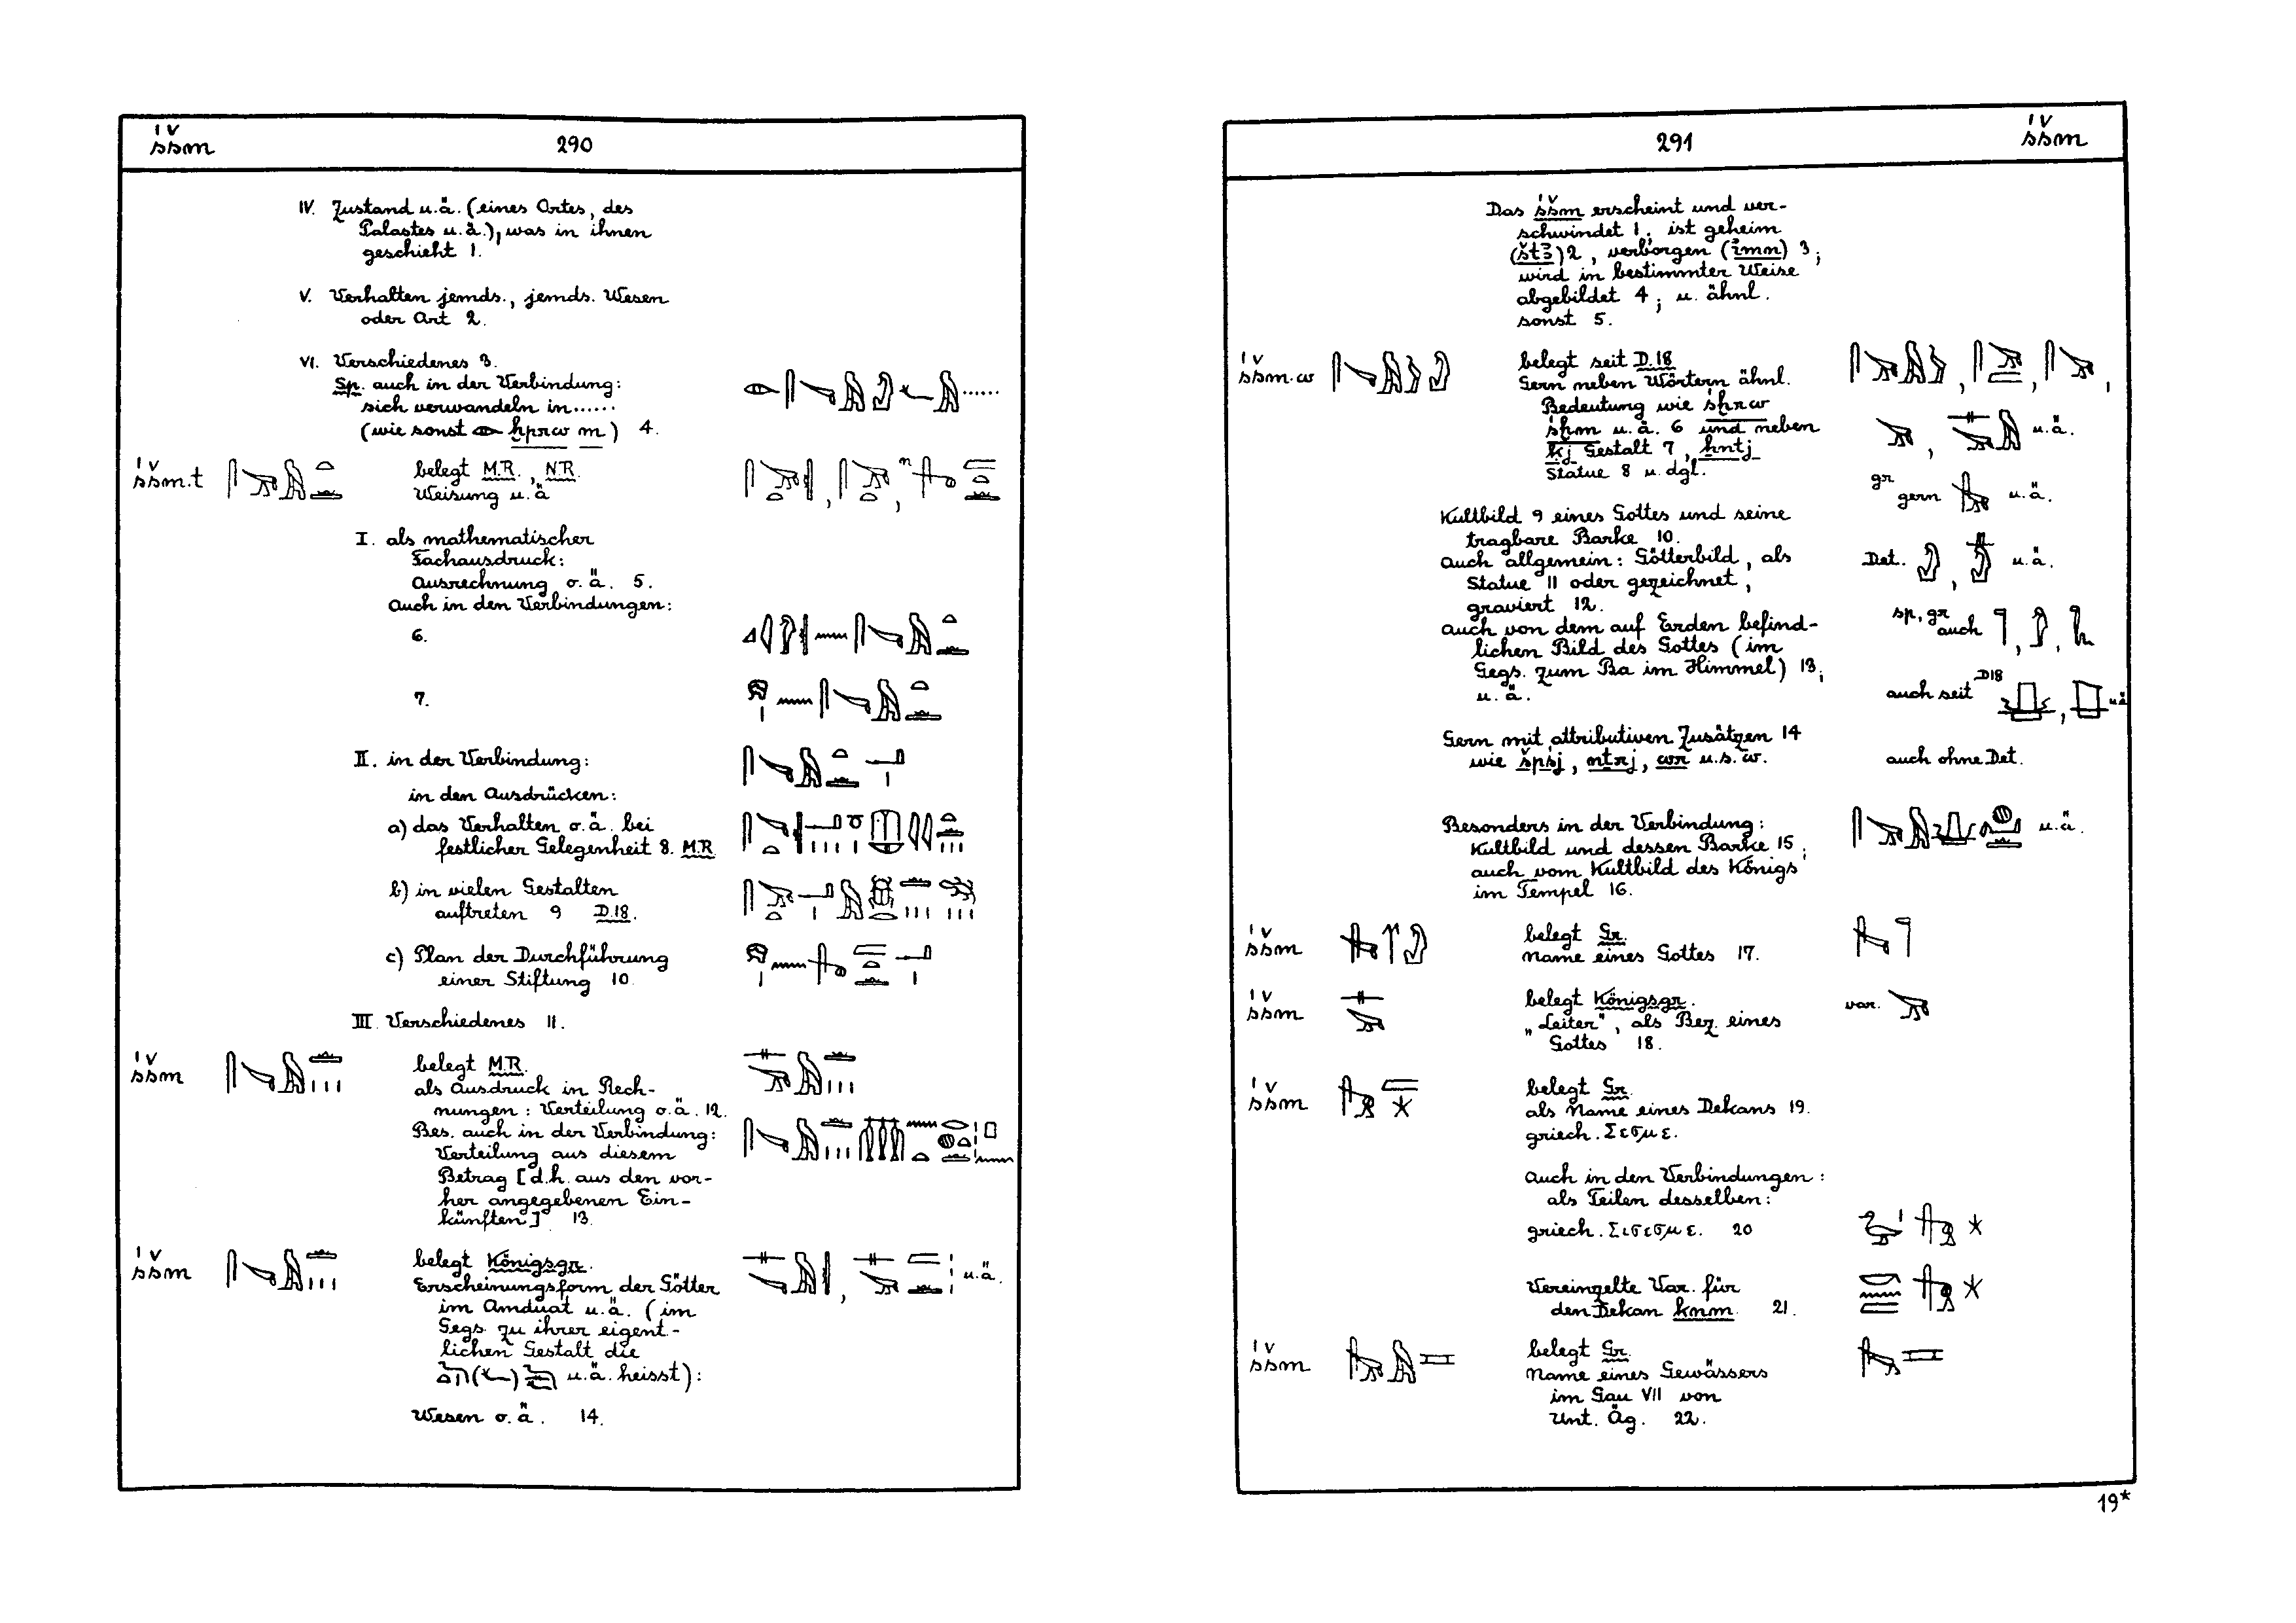 śšm
290
IV. Zustand u.ä. (eines Ortes, des
Palastes u.ä.), was in ihnen
geschieht 1.
V. Verhalten jemds., jemds. Wesen
oder Art 2.
VI. Verschiedenes 3.
Sp. auch in der Verbindung:
sich verwandeln in......
(wie sonst ḫprw m) 4.
śšm.t
belegt M.R., N.R.
Weisung u.ä
I. als mathematischer
Fachausdruck:
Ausrechnung o.ä. 5.
Auch in den Verbindungen:
6.
7.
II. in der Verbindung:
in den Ausdrücken:
a) das Verhalten o.ä. bei
festlicher Gelegenheit 8. M.R.
b) in vielen Gestalten
auftreten 9 D.18.
c) Plan der Durchführung
einer Stiftung 10.
III. Verschiedenes 11.
śšm
belegt M.R.
als Ausdruck in Rech-
nungen: Verteilung o.ä. 12.
Bes. auch in der Verbindung:
Verteilung aus diesem
Betrag [d.h. aus den vor-
her angegebenen Ein-
künften] 13.
śšm
belegt Königsgr.
Erscheinungsform der Götter
u.ä.
im Amduat u.ä. (im
Gegs. zu ihrer eigent-
lichen Gestalt die
u.ä. heisst):
Wesen o.ä. 14.
291
śšm
Das śšm erscheint und ver-
schwindet 1; ist geheim
(štꜣ) 2, verborgen (imn) 3;
wird in bestimmter Weise
abgebildet 4; u. ähnl.
sonst 5.
śšm.w
belegt seit D.18
Gern neben Wörtern ähnl.
Bedeutung wie śḫrw
śḫm u.ä. 6 und neben
u.ä.
kj Gestalt 7, ḫntj
Statue 8 u. dgl.
gr gern u.ä.
Kultbild 9 eines Gottes und seine
tragbare Barke 10.
Auch allgemein: Götterbild, als
Det. u.ä.
Statue 11 oder gezeichnet,
graviert 12.
auch von dem auf Erden befind-
sp., gr auch
lichen Bild des Gottes (im
Gegs. zum Ba im Himmel) 13;
u.ä.
auch seit D18 u.ä
Gern mit attributiven Zusätzen 14
wie špśj, nṯrj, wr u.s.w.
auch ohne Det.
Besonders in der Verbindung:
u.ä.
Kultbild und dessen Barke 15;
auch vom Kultbild des Königs
im Tempel 16.
śšm
belegt Gr.
Name eines Gottes 17.
śšm
belegt Königsgr.
var.
„Leiter", als Bez. eines
Gottes 18.
śšm
belegt Gr.
als Name eines Dekans 19.
griech. Σεσμε.
Auch in den Verbindungen:
als Teilen desselben:
griech. Σισεσμε. 20
Vereinzelte Var. für
den Dekan knm. 21.
śšm
belegt Gr.
Name eines Gewässers
im Gau VII von
Unt. Äg. 22.
19*